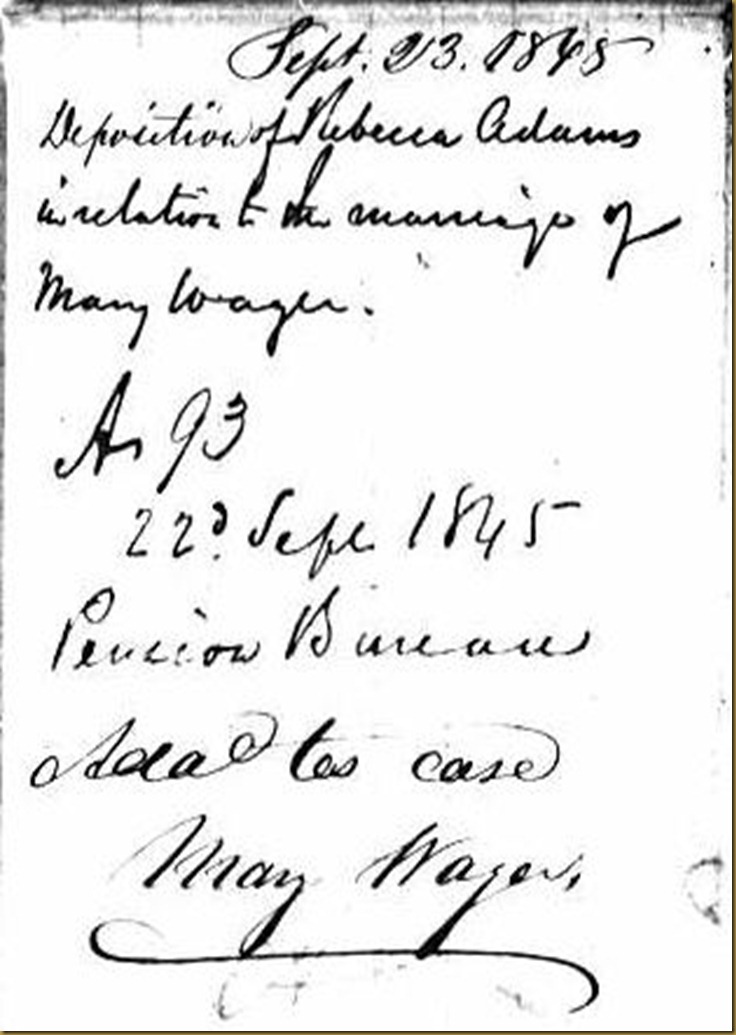 Sept. 23. 1845
Deposition of Rebecca Adams
in relation to the marriage of
Mary Wager.
As 93
22d. Sept. 1845
Pension Bureau
Add tes case
Mary Wager.